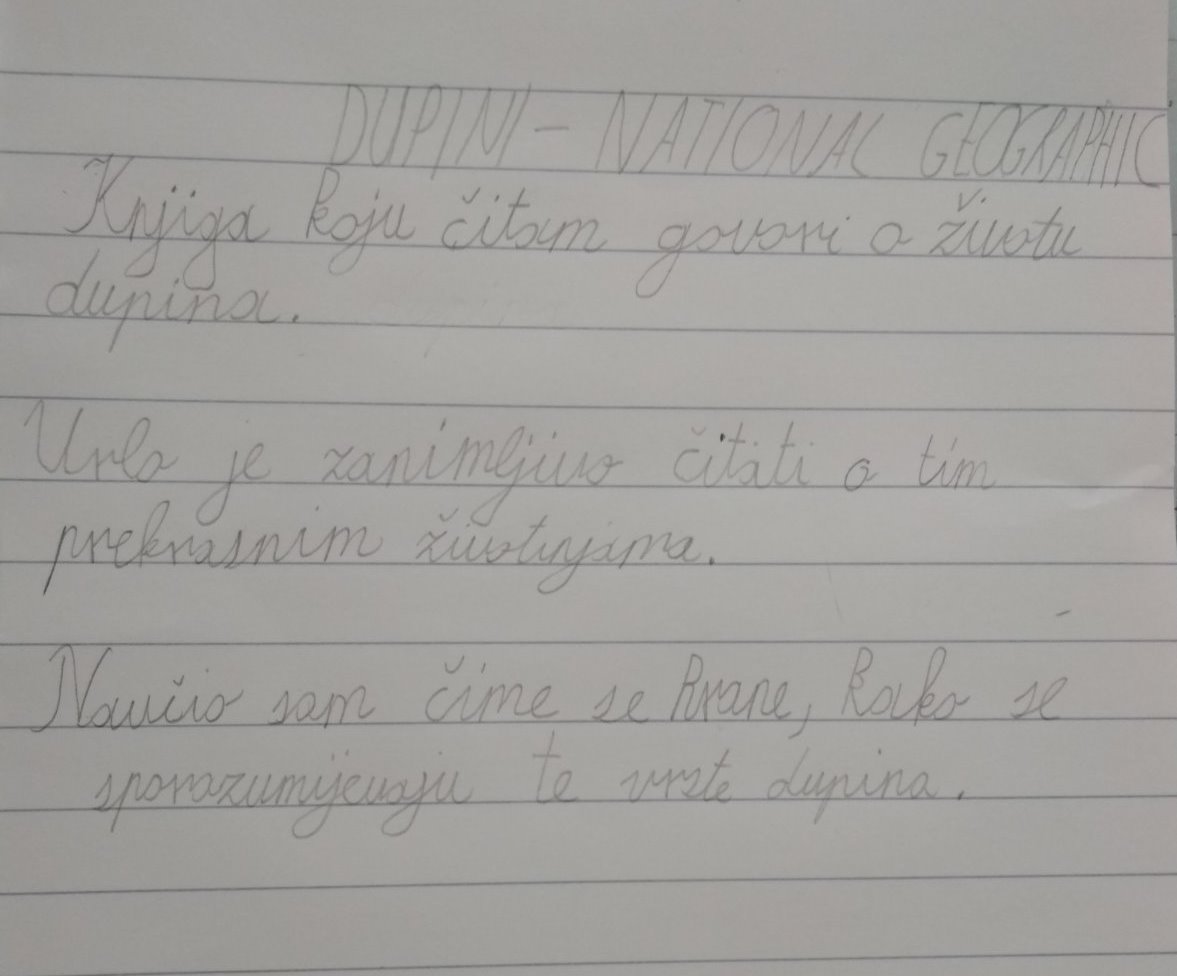 DUPINI - NATIONAL GEOGRAPHIC
Knjiga koju čitam govori o životu
dupina.
Vrlo je zanimljivo čitati o tim
prekrasnim životinjama.
Naučio sam čime se hrane, kako se
sporazumijevaju te vrste dupina.